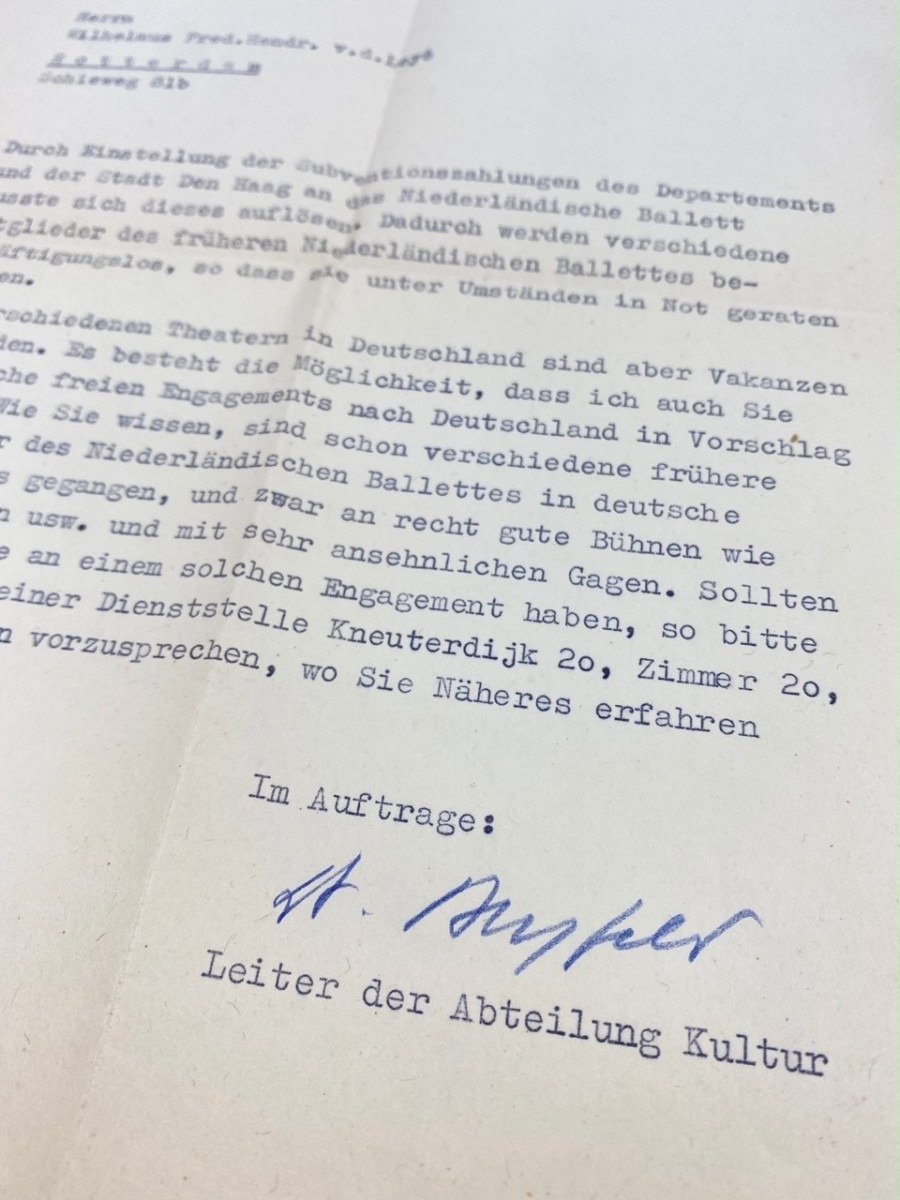 Herrn
Wilhelmus Fred.Hendr. v.d.
Rotterdam
Schieweg 81b
Durch Einstellung der Subventionszahlungen des Departements
und der Stadt Den Haag an das Niederländische Ballett
usste sich dieses auflösen. Dadurch werden verschiedene
tglieder des früheren Niederländischen Ballettes be-
äftigungslos, so dass sie unter Umständen in Not geraten
en.
rschiedenen Theatern in Deutschland sind aber Vakanzen
den. Es besteht die Möglichkeit, dass ich auch Sie
che freien Engagements nach Deutschland in Vorschlag
Wie Sie wissen, sind schon verschiedene frühere
r des Niederländischen Ballettes in deutsche
s gegangen, und zwar an recht gute Bühnen wie
n usw. und mit sehr ansehnlichen Gagen. Sollten
e an einem solchen Engagement haben, so bitte
einer Dienststelle Kneuterdijk 2o, Zimmer 2o,
n vorzusprechen, wo Sie Näheres erfahren
Im Auftrage:
Leiter der Abteilung Kultur